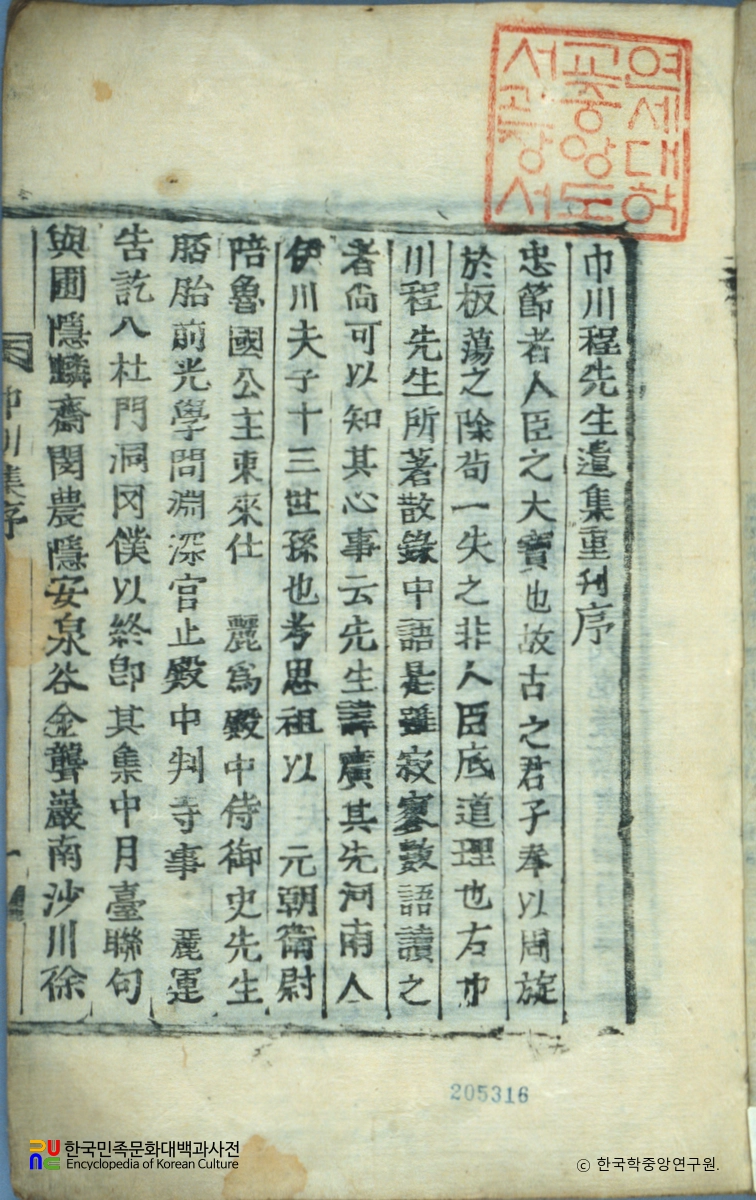 연세대학
교중앙도
서관장서
巾川程先生遺集重刊序
忠節者人臣之大寶也故古之君子奉以周旋
於板蕩之際苟一失之非人臣底道理也右巾
川程先生所著散錄中語是雖寂寥數語讀之
者尙可以知其心事云先生諱廣其先河南人
伊川夫子十三世孫也考思祖以 元朝衛尉
陪魯國公主東來仕 麗爲殿中侍御史先生
胚胎前光學問淵深官止殿中判寺事 麗運
告訖入杜門洞罔僕以終卽其集中月臺聯句
與圃隱麟齋閔農隱安泉谷金聾巖南沙川徐
巾川集序
一
205316
한국민족문화대백과사전
Encyclopedia of Korean Culture
ⓒ 한국학중앙연구원.